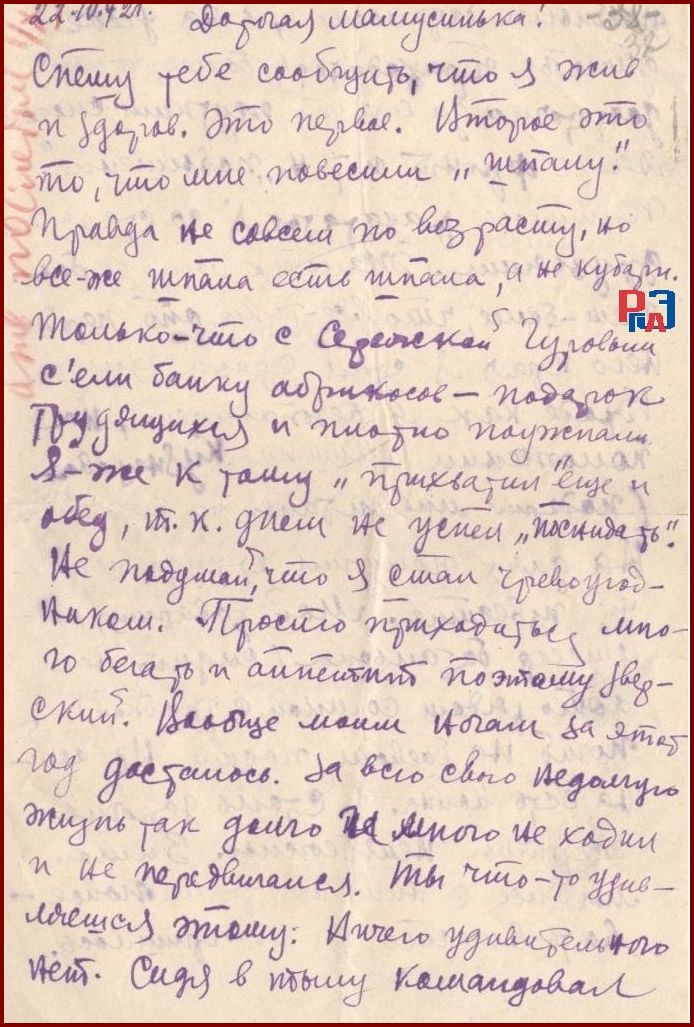 22.10.42г. Дорогая мамусинька!
Спешу тебе сообщить, что я жив
и здоров. Это первое. Второе это
то, что мне повесили „шпалу".
Правда не совсем по возрасту, но
все-же шпала есть шпала, а не кубари.
РГАЭ
Только-что с Сережкой Гуровым
с'ели банку абрикосов – подарок
трудящихся и плотно поужинали
Я-же к тому „прихватил" еще и
обед, т.к. днем не успел „пошидать".
Не подумай, что я стал чревоугод-
ником. Просто приходиться мно-
го бегать и аппетит поэтому звер-
ский. Вообще моим ногам за этот
год досталось. За всю свою недолгую
жизнь так долго и много не ходил
и не передвигался. Ты что-то удив-
ляешся этому: Ничего удивительного
нет. Сидя в тылу командовал